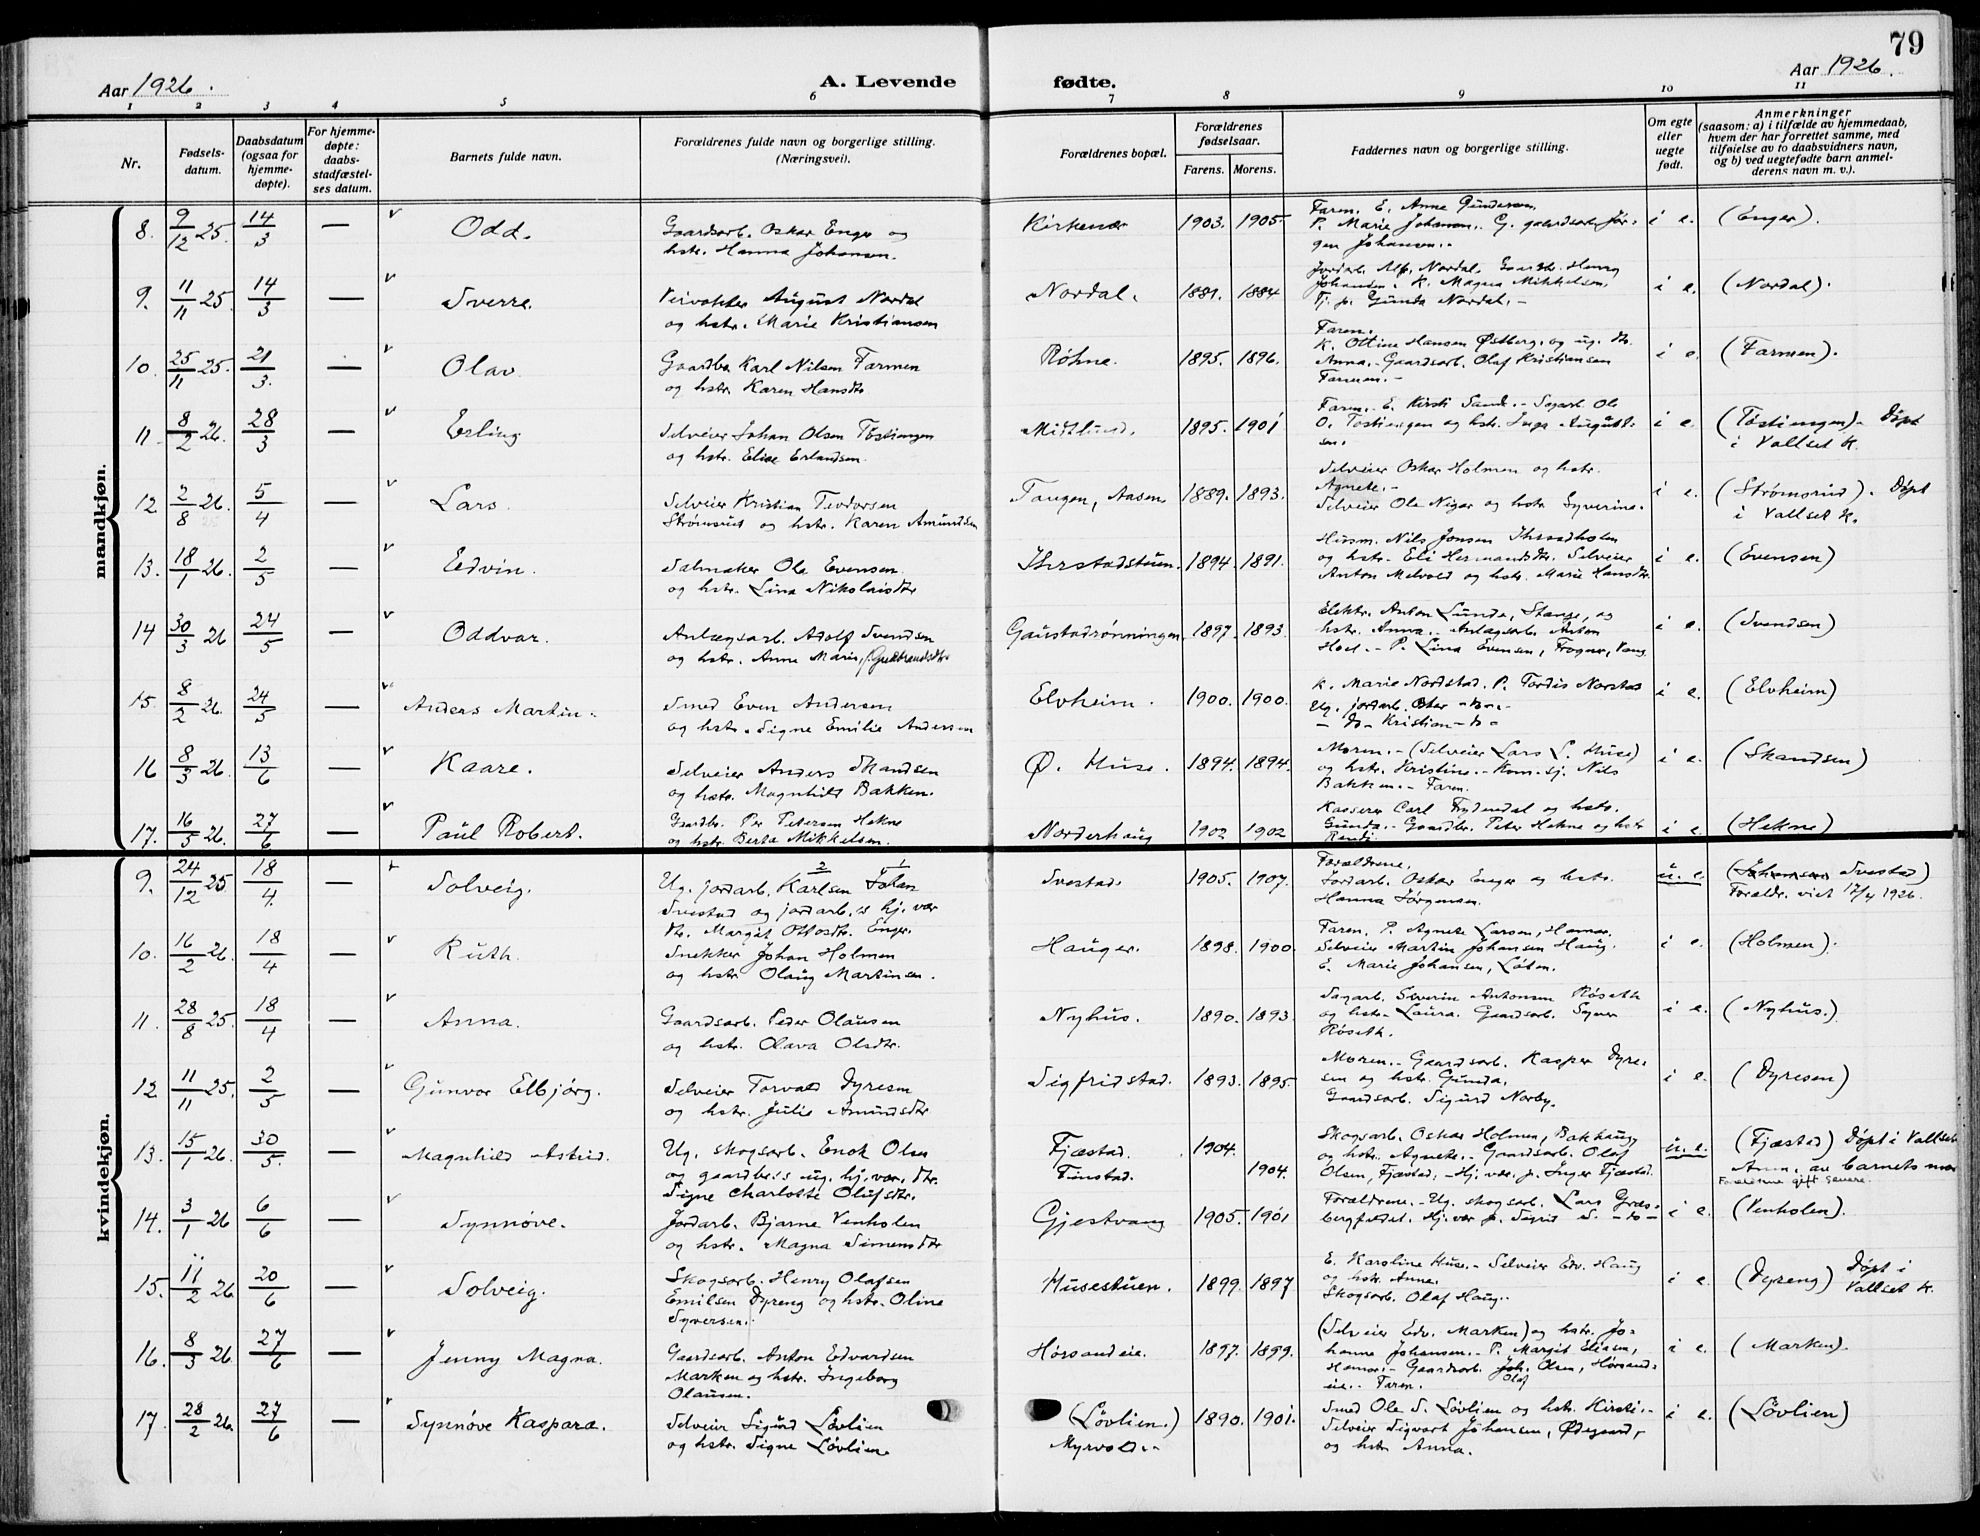 79
Aar 1926. A. Levende fødte. Aar 1926.
1 2 3 4 5 6 7 8 9 10 11
Nr. Fødsels-datum. Daabsdatum (ogsaa for hjemme-døpte). For hjemme-døpte: daabs-stadfæstel-ses datum. Barnets fulde navn. Forældrenes fulde navn og borgerlige stilling. (Næringsvei). Forældrenes bopæl. Forældrenes fødselsaar. Farens. Morens. Faddernes navn og borgerlige stilling. Om egte eller uegte født. Anmerkninger (saasom: a) i tilfælde av hjemmedaab, hvem der har forrettet samme, med tilføielse av to daabsvidners navn, og b) ved uegtefødte barn anmel-derens navn m. v.).
mandkjøn.
8. 9/12 25. 14/3 — Odd. Gaardsarb. Oskar Enger og
hstr. Hanna Johansen. Kirkenær 1903. 1905. Faren. E. Anne Gundersen,
P. Marie Johansen. G. gaardsarb. Jør-
gen Johansen. i e. (Enger).
9. 11/11 25. 14/3 — Sverre. August Nordal
og hstr. Marie Kristiansen Nordal. 1881. 1884 Jordarb. Alf. Nordal. Henry
Johansen. K. Magna Mikkelsen.
Tj. p. Gunda Nordal. i e. (Nordal).
10. 25/11 25. 21/3. — Olav Gaardbr. Karl Nilsen Farmen
og hstr. Karen Hansdtr. Røhne. 1895. 1896. Faren.
K. Ottine Hansen Østberg, og ug. dtr.
Anna. Gaardsarb. Olaf Kristiansen
Farmen. i e. (Farmen).
11. 8/2 26. 28/3 — Erling Selveier Johan Olsen Tøstiengen
og hstr. Elise Erlandsen. Midtlund. 1895. 1901 Faren. E. Kirsti Sande. Sagarb. Ole
O. Tøstiengen og hstr. Inga August-
sen. i e. (Tøstiengen). Døpt
i Vallset K.
12 2/8 26. 5/4 — Lars. Selveier Kristian Teodorsen
Strømsrud og hstr. Karen Amundsen Tangen, Aasen 1889. 1893. Selveier Oskar Holmen og hstr.
Agnete.
Selveier Ole Nigar og hstr. Syverine. i e. (Strømsrud). Døpt
i Vallset K.
13. 18/1 26. 2/5 — Edvin. Salmaker Ole Evensen
og hstr. Lina Nikolaisdtr Ihrstadstuen. 1894. 1891. Husm. Nils Jonsen Ihrstadholen
og hstr. Eli Hermandsdtr. Selveier
Anton Melvold og hstr. Marie Hansdtr. i e. (Evensen)
14 30/3 26 24/5 — Oddvar. Anlægsarb. Adolf Svendsen
og hstr. Anne Marie, Gudbrandsdtr Gaustadrønningen. 1897. 1893. Elektr. Anton Lunde, Stange, og
hstr. Anna. Anlægsarb. Anton
Hoel. P. Lina Evensen, Frogner, Vang. i e. (Svendsen)
15. 8/2 26. 24/5 — Anders Martin. Smed Even Andersen
og hstr. Signe Emilie Andersen Elvheim. 1900. 1900. K. Marie Nordstad. P. Tordis Norstad
Ug. jordarb. Oskar -do-
-do- Kristian -do- i e. (Elvheim)
16 8/3 26. 13/6 — Kaare. Selveier Anders Skandsen
og hstr. Magnhild Bakken. Ø. Huse. 1894. 1894. Moren. (Selveier Lars L. Huse)
og hstr. Kristine. Kom. sj. Nils
Bakken. Faren. i e. (Skandsen)
17. 16/5 26. 27/6 — Paul Robert. Gaardbr. Per Petersen Hekne
og hstr. Berta Mikkelsen. Norderhaug 1902 1902 Kasserer Carl Frydendal og hstr.
Gunda. Gaardbr. Peter Hekne og hstr
Randi i e. (Hekne)
kvindekjøn.
9. 24/12 25. 18/4. — Solveig. Ug. jordarb. Karlsen Johan
Svestad og jordarb.s hj. vær
dtr. Margit Ottosdtr. Enger. Svestad. 1905. 1907. Forældrene.
Jordarb. Oskar Enger og hstr.
Hanna Jørgensen. u. e. (Johansen Svestad)
Forældr. viet 17/4 1926.
10. 16/2 26. 18/4 — Ruth. Snekker Johan Holmen
og hstr Olaug Martinsen. Hauger. 1898. 1900. Faren. P. Agnete Larsen, Hamar.
Selveier Martin Johansen Haug.
E. Marie Johansen, Løten. i e. (Holmen).
11. 28/8 25. 18/4 — Anna. Gaardsarb. Peder Olausen
og hstr. Olava Olsdtr. Nyhus. 1890. 1893. Sagarb. Severin Antonsen Røseth
og hstr. Laura. Gaardsarb. Syver
Røseth. i e. (Nyhus.)
12 11/11 25. 2/5 — Gunvor Elbjørg. Selveier Torvald Dyresen
og hstr. Julie Amundsdtr Sigfridstad. 1893. 1895. Moren. Gaardsarb. Kasper Dyre-
sen og hstr. Gunda.
Gaardsarb. Sigurd Norby. i e. (Dyresen)
13. 15/1 26. 30/5. — Magnhild Astrid. Ug. skogsarb. Enok Olsen
og gaardbr.s ug. hj. vær. dtr.
Signe Charlotte Olufsdtr. Fjæstad. 1904.
Finstad. 1904. Skogsarb. Oskar Holmen, Bakhaug
og hstr. Agnete. Gaardsarb. Olaf
Olsen, Fjæstad. Hj. vær. p. Inger Fjæstad. u. e. (Fjæstad) Døpt i Vallset
Anm. av barnets mor
Forældrene gift senere.
14. 3/1 26 6/6 — Synnøve. Jordarb. Bjarne Venholen
og hstr. Magna Simensdtr Gjestvang 1905. 1901 Forældrene. Ug. skogsarb. Lars Græs-
bergfeltet. Hj. vær p. Sigrid S. -do- i e. (Venholen).
15. 11/2 26 20/6 — Solveig. Skogsarb. Henry Olafsen
Emilsen Dyreng og hstr. Oline
Syversen. Husestuen. 1899. 1897 E. Karoline Huse. Selveier Edv. Haug
og hstr. Anne.
Skogsarb. Olaf Haug. i e. (Dyreng) Døpt i
Vallset K.
16. 8/3 26. 27/6 — Jenny Magna. Gaardsarb. Anton Edvardsen
Marken og hstr. Ingeborg
Olausen. Hørsandeie. 1897. 1899. (Selveier Edv. Marken) og hstr. Jo-
hanne Johansen. P. Margit Eliasen,
Hamar. Gaardsarb. Joh. Olsen, Hørsand-
eie. Faren. Olaf i e. (Marken).
17. 28/2 26. 27/6 — Synnøve Kaspara. Selveier Sigurd Løvlien
og hstr. Signe Løvlien (Løvlien.)
Myrvold. 1890. 1901. Smed Ole S. Løvlien og hstr. Kirsti.
Selveier Sigvart Johansen, Ødegaard,
og hstr Anna. i e. (Løvlien)